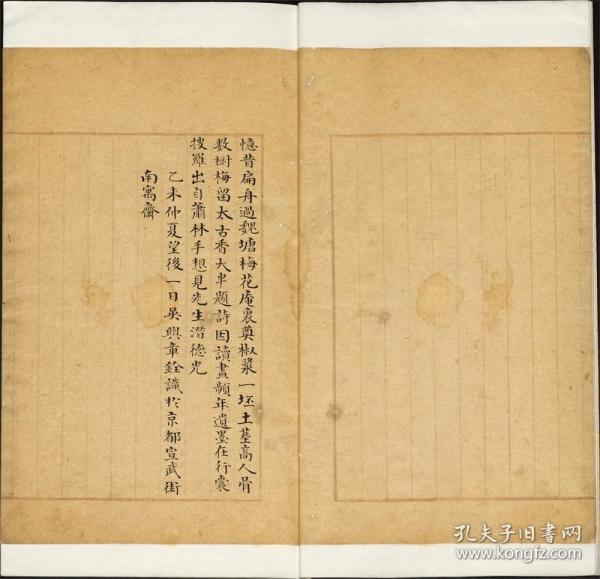 憶昔扁舟過魏塘梅花庵裏奠椒漿一坯土墓高人骨
數樹梅留太古香大半題詩因讀畫頻年遺墨在行囊
搜羅出自蕭林手想見先生潛德光
乙未仲夏望後一日吳興章銓識於京都宣武街
南寓齋
孔夫子旧书网
www.kongfz.com